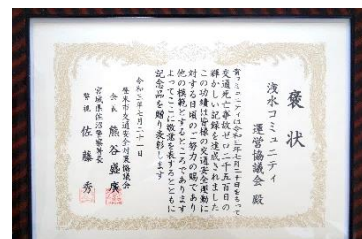 褒状
浅水コミュニティ
運営協議会 殿
貴コミュニティは令和三年七月二十日をもって
交通死亡事故ゼロ二千五百日の
輝かしい記録を達成されました
この功績は皆様の交通安全運動に
対する日頃のご努力の賜であり
他の模範とするところであります
よってここに敬意を表するとともに
記念品を贈り表彰します
令和三年七月二十一日
登米市交通安全対策協議会
会長 熊谷盛廣
宮城県佐沼警察署長
警視 佐藤秀